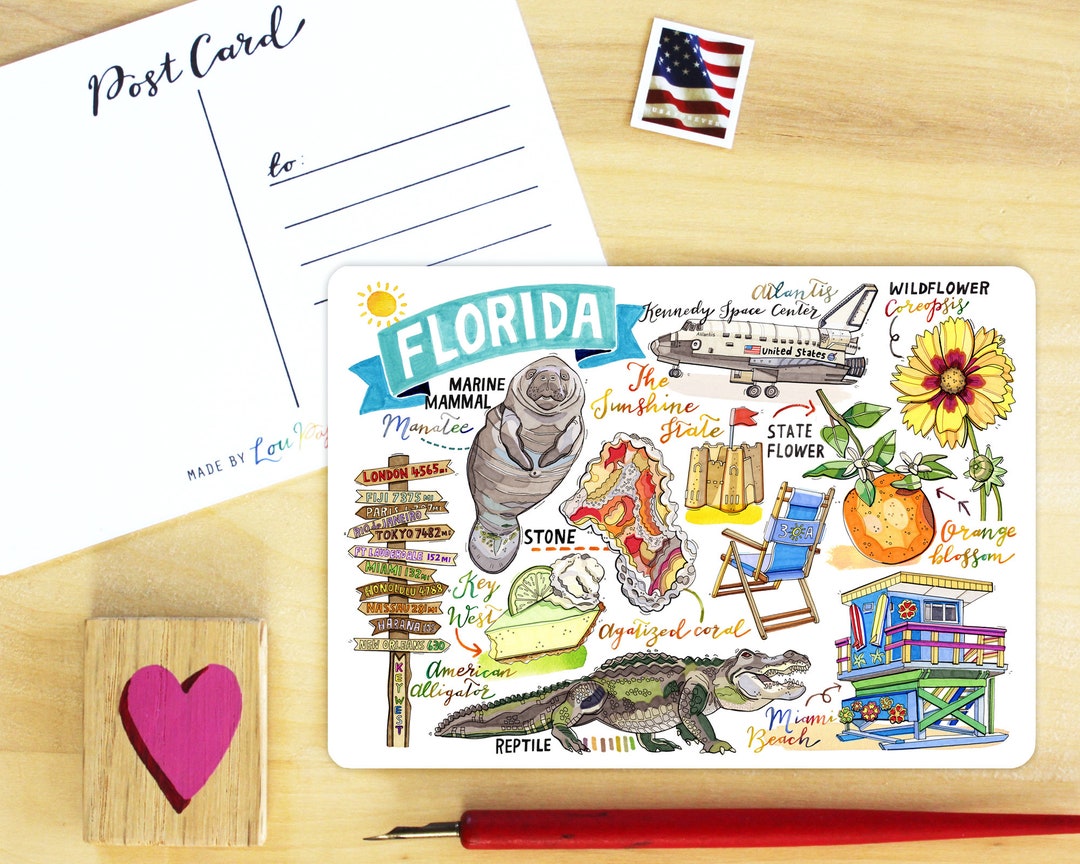 Post Card
to:
MADE BY Lou
FLORIDA
Atlantis
Kennedy Space Center
Atlantis
United States
WILDFLOWER
Coreopsis
MARINE
MAMMAL
Manatee
The
Sunshine
State
STATE
FLOWER
LONDON 4565 MI
FIJI 7375 MI
PARIS
RIO de JANEIRO
TOKYO 7482 MI
FT LAUDERDALE 152 MI
MIAMI 132 MI
HONOLULU 4788
NASSAU 231 MI
HABANA
NEW ORLEANS 630
KEY WEST
STONE
Agatized coral
Orange
blossom
Key
West
American
Alligator
REPTILE
Miami
Beach